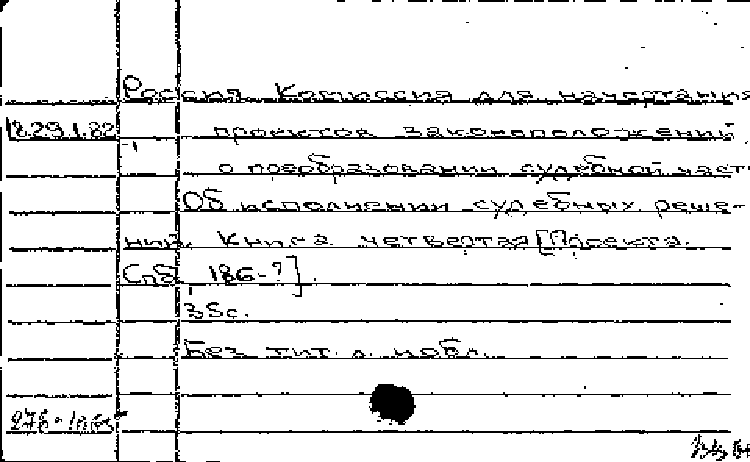 Россия. Комиссия для начертания
18.29.1.82
проектов законоположений
о преобразовании судебной част
Об исполнении судебных реше-
ний. Книга четвертая [Проекта.
Спб., 186-?].
35с.
Без тит. л. и обл.